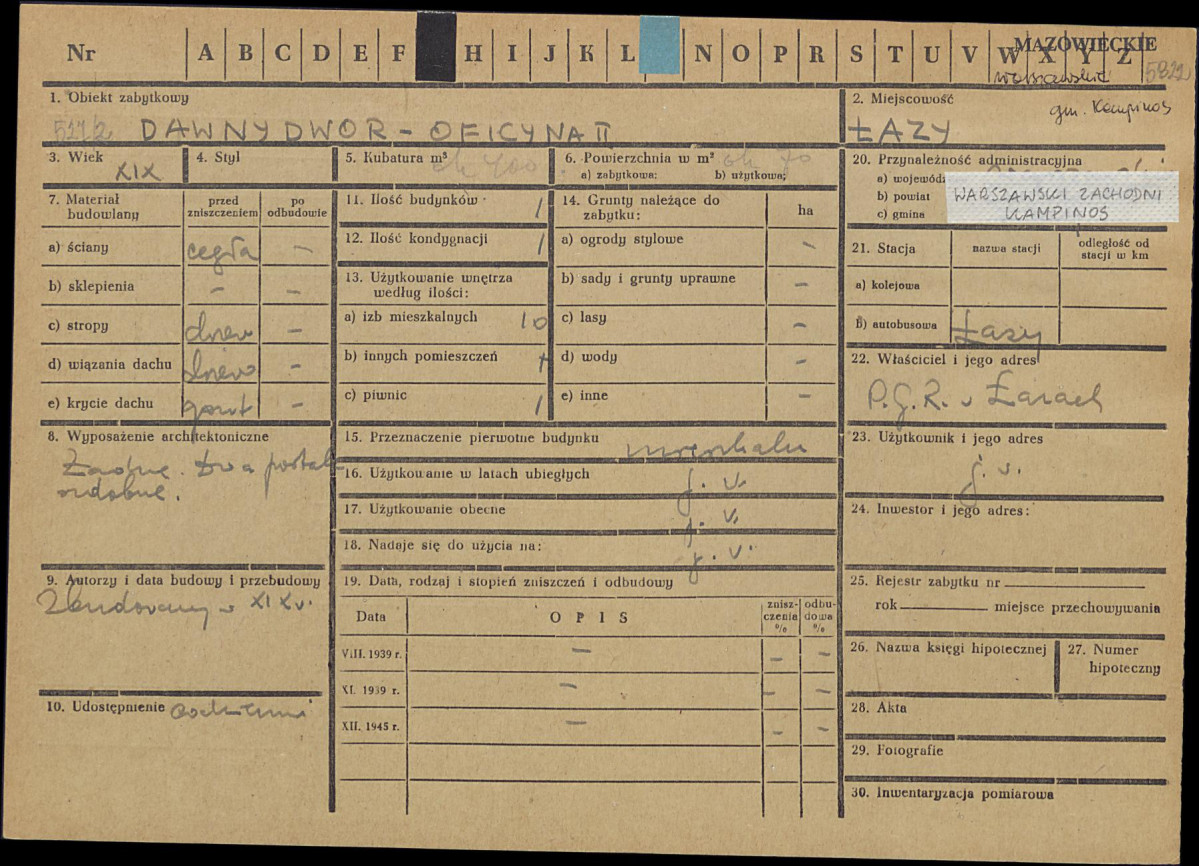 Nr A B C D E F H I J K L N O P R S T U V W X Y Z
MAZOWIECKIE
warszawskie
5822
1. Obiekt zabytkowy
527/2 DAWNY DWÓR - OFICYNA II
2. Miejscowość
gm. Kampinos
ŁAZY
3. Wiek
XIX
4. Styl
5. Kubatura m³
ok 400
6. Powierzchnia w m² ok 70
a) zabytkowa: b) użytkowa;
7. Materiał budowlany
przed zniszczeniem
po odbudowie
a) ściany cegła –
b) sklepienia – –
c) stropy drewn –
d) wiązania dachu drewn –
e) krycie dachu gont –
8. Wyposażenie architektoniczne
Żadne. Dwa portale
ozdobne.
9. Autorzy i data budowy i przebudowy
Zbudowany w XIX w.
10. Udostępnienie
11. Ilość budynków 1
12. Ilość kondygnacji 1
13. Użytkowanie wnętrza
według ilości:
a) izb mieszkalnych 10
b) innych pomieszczeń
c) piwnic 1
14. Grunty należące do
zabytku:
ha
a) ogrody stylowe –
b) sady i grunty uprawne –
c) lasy –
d) wody –
e) inne –
15. Przeznaczenie pierwotne budynku mieszkalne
16. Użytkowanie w latach ubiegłych j. w.
17. Użytkowanie obecne j. w.
18. Nadaje się do użycia na: j. w.
19. Data, rodzaj i stopień zniszczeń i odbudowy
Data
OPIS
znisz-
czenia
%
odbu-
dowa
%
VIII. 1939 r. – – –
XI. 1939 r. – – –
XII. 1945 r. – – –
20. Przynależność administracyjna
a) wojewód
b) powiat WARSZAWSKI ZACHODNI
c) gmina KAMPINOS
21. Stacja
nazwa stacji
odległość od
stacji w km
a) kolejowa
b) autobusowa Łazy
22. Właściciel i jego adres
P.G.R. w Łazach
23. Użytkownik i jego adres
j. w.
24. Inwestor i jego adres:
25. Rejestr zabytku nr
rok miejsce przechowywania
26. Nazwa księgi hipotecznej
27. Numer
hipoteczny
28. Akta
29. Fotografie
30. Inwentaryzacja pomiarowa